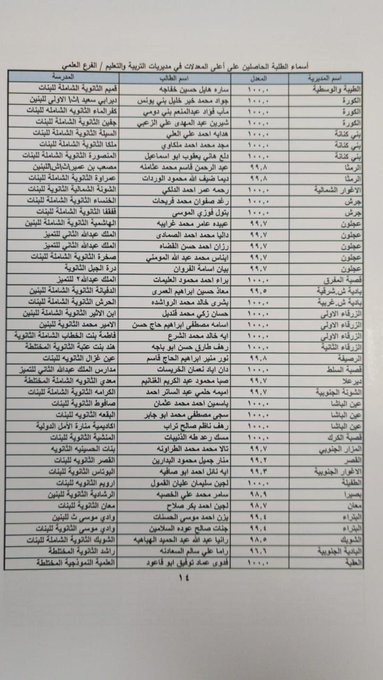 أسماء الطلبة الحاصلين على أعلى المعدلات في مديريات التربية والتعليم / الفرع العلمي
اسم المديرية المعدل اسم الطالب المدرسة
الطيبة والوسطية ١٠٠,٠ ساره هايل حسين خفاجه قميم الثانوية الشاملة للبنات
الكورة ١٠٠,٠ جواد محمد خير خليل بني يونس ديرابي سعيد الاولى للبنين
الكورة ١٠٠,٠ مآب فؤاد عبدالمنعم بني دومي كفرالماء الثانويه الشامله للبنات
الكورة ١٠٠,٠ شيرين عبد المهدي علي الزعبي جفين الثانوية الشاملة للبنات
بني كنانة ١٠٠,٠ هدايه احمد علي العلي السيلة الثانوية الشاملة للبنات
بني كنانة ١٠٠,٠ مجد محمد احمد ملكاوي ملكا الثانوية الشاملة للبنات
بني كنانة ١٠٠,٠ دلع هاني يعقوب ابو اسماعيل المنصورة الثانوية الشاملة للبنات
الرمثا ٩٩,٨ عبد الرحمن قاسم محمد عثامنه مصعب بن عمير
الرمثا ٩٩,٨ ديما ضيف الله محمود الوردات عمراوة الثانوية الشاملة للبنات
الاغوار الشمالية ١٠٠,٠ رحمه عمر احمد الدلكي الشونة الشمالية الثانوية للبنات
جرش ١٠٠,٠ رغد صفوان محمد فريحات الخنساء الثانوية للبنات
جرش ١٠٠,٠ بتول فوزي الموسى قفقفا الثانوية الشاملة للبنات
عجلون ٩٩,٧ عبيده عامر محمد غرايبه الهاشمية الثانوية للبنين
عجلون ٩٩,٧ داليا محمد احمد الصمادي الملك عبدالله الثاني للتميز
عجلون ٩٩,٧ رزان احمد حسن القضاه الملك عبدالله الثاني للتميز
عجلون ٩٩,٧ ايناس محمد عبد الله المومني صخرة الثانوية للبنات
عجلون ٩٩,٧ بيان اسامة الفروان درة الجبل الثانوية
قصبة المفرق ١٠٠,٠ براء احمد محمود العليمات الملك عبدالله٢ للتميز
بادية ش.شرقية ٩٩,٥ معاذ حسين ابراهيم العمري الدفيانة الثانوية للبنين
بادية ش.غربية ١٠٠,٠ بشرى خالد محمد الرواشده الحرش الثانوية للبنات
الزرقاء الاولى ١٠٠,٠ حسان زكي محمد قنديل ابن الاثير الثانوية للبنين
الزرقاء الاولى ١٠٠,٠ اسامه مصطفى ابراهيم حاج حسن الامير محمد الثانوية للبنين
الزرقاء الاولى ١٠٠,٠ ايه خالد محمد الشرع فاطمة بنت الخطاب الشاملة الثانوية
الزرقاء الثانية ١٠٠,٠ رهف طارق حسن ابو باجه هند بنت عتبة الثانوية المختلطة
الرصيفة ٩٩,٨ نور منير ابراهيم الحاج قاسم عين غزال الثانويه للبنات
قصبة السلط ١٠٠,٠ دان اياد نعمان الخريسات مدارس الملك عبدالله الثاني للتميز
ديرعلا ٩٩,٧ صبا محمود عبد الكريم الغنانيم معدي الثانويه الشاملة المختلطة
الشونة الجنوبية ٩٩,٧ اميمه حلمي عبد الساتر احمد الكرامه الثانوية للبنات
عين الباشا ١٠٠,٠ ياسمين احمد محمد عثمان صافوط الثانوية للبنات
عين الباشا ١٠٠,٠ سجى مصطفى محمد ابو جابر البقعه الثانويه للبنات
عين الباشا ١٠٠,٠ رهف ناظم صالح تراب اكاديمية منارة الأمل الدولية
قصبة الكرك ١٠٠,٠ مسك رعد طه الذنيبات المنشية الثانوية للبنات
المزار الجنوبي ١٠٠,٠ تالا محمد محمد الطراونه بنات الحسينيه الثانويه
القصر ٩٩,٧ منار جميل محمود البدارين القصر الثانوية للبنات
الاغوار الجنوبية ٩٩,٣ ايه نائل احمد ابو صافيه البوتاس الثانوية للبنات
الطفيلة ١٠٠,٠ لجين سليمان عليان القمول ارويم الثانويه للبنات
بصيرا ٩٨,٩ سامر محمد علي الخصبه الرشادية الثانوية للبنين
معان ٩٨,٩ لجين احمد بكر صلاح معان الثانوية للبنات
البتراء ٩٩,٤ يزن احمد موسى الحسنات وادي موسى ث للبنين
البتراء ٩٩,٤ جنات صالح عوده السلامين وادي موسى الثانوية للبنات
الشوبك ٩٨,٥ رانيا عبد الله عبد الحميد الهباهبه الشوبك الثانوية الشاملة للبنات
البادية الجنوبية ٩١,٦ راما علي سالم السعادنه راشد الثانوية المختلطة
العقبة ١٠٠,٠ فدوى عماد توفيق ابو قاعود العلمية النموذجية المختلطة
١٤